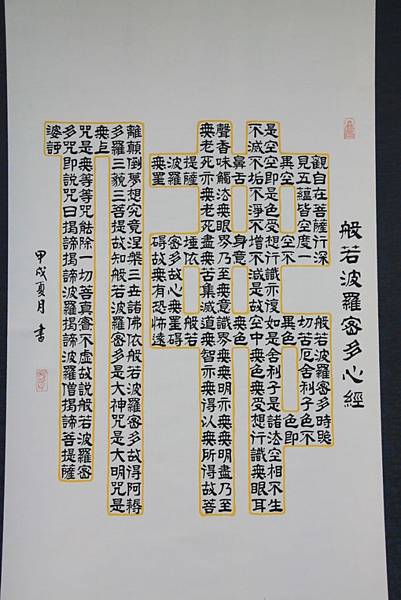 般若波羅密多心經
觀自在菩薩行深般若波羅密多時照
見五蘊皆空度一切苦厄舍利子色不
異空空不異色色即
是空空即是色受想行識亦復如是舍利子是諸法空相不生
不滅不垢不淨不增不減是故空中無色無受想行識無眼耳
鼻舌身意無色
聲香味觸法無眼界乃至無意識界無無明亦無無明盡乃至
無老死亦無老死盡無苦集滅道無智亦無得以無所得故菩
提薩埵依般若
波羅密多故心無罣礙
無罣礙故無有恐怖遠
離顛倒夢想究竟涅槃三世諸佛依般若波羅密多故得阿耨
多羅三藐三菩提故知般若波羅密多是大神咒是大明咒是
無上
咒是無等等咒能除一切苦真實不虛故說般若波羅密
多咒即說咒曰揭諦揭諦波羅揭諦波羅僧揭諦菩提薩
婆訶
甲戌夏月 書